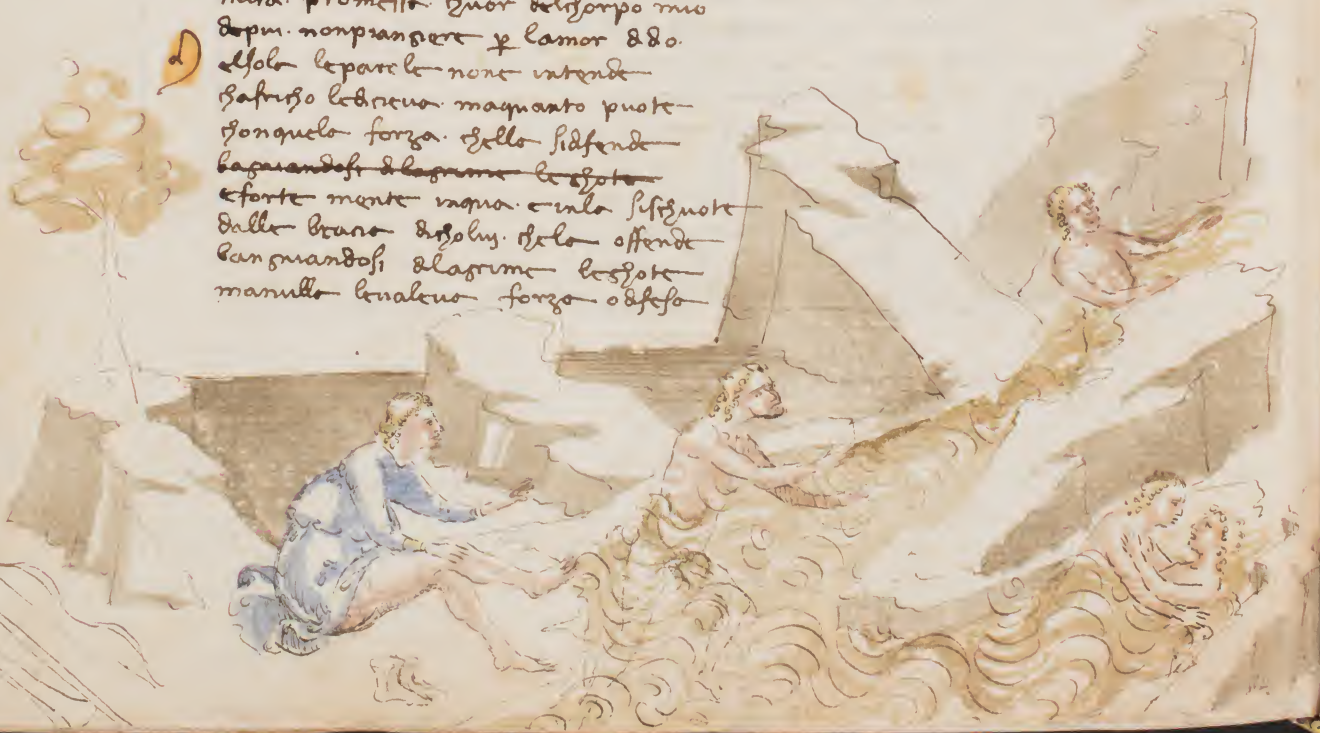 mia · promesse · chuor delchorpo mio
depui · nonpiangiere p lamor d dio ·
d
Ella leparele none intende
chafricho lediceva · maquanto puote
chonquela forza · chella sidfende
bagniandosi dlagrime leghote
eforte mente inqua · e inla sischuote
dalle bracia dicholui · chela offende
bangniandosi dlagrime leghote
manulla levaleva forza o dfesa